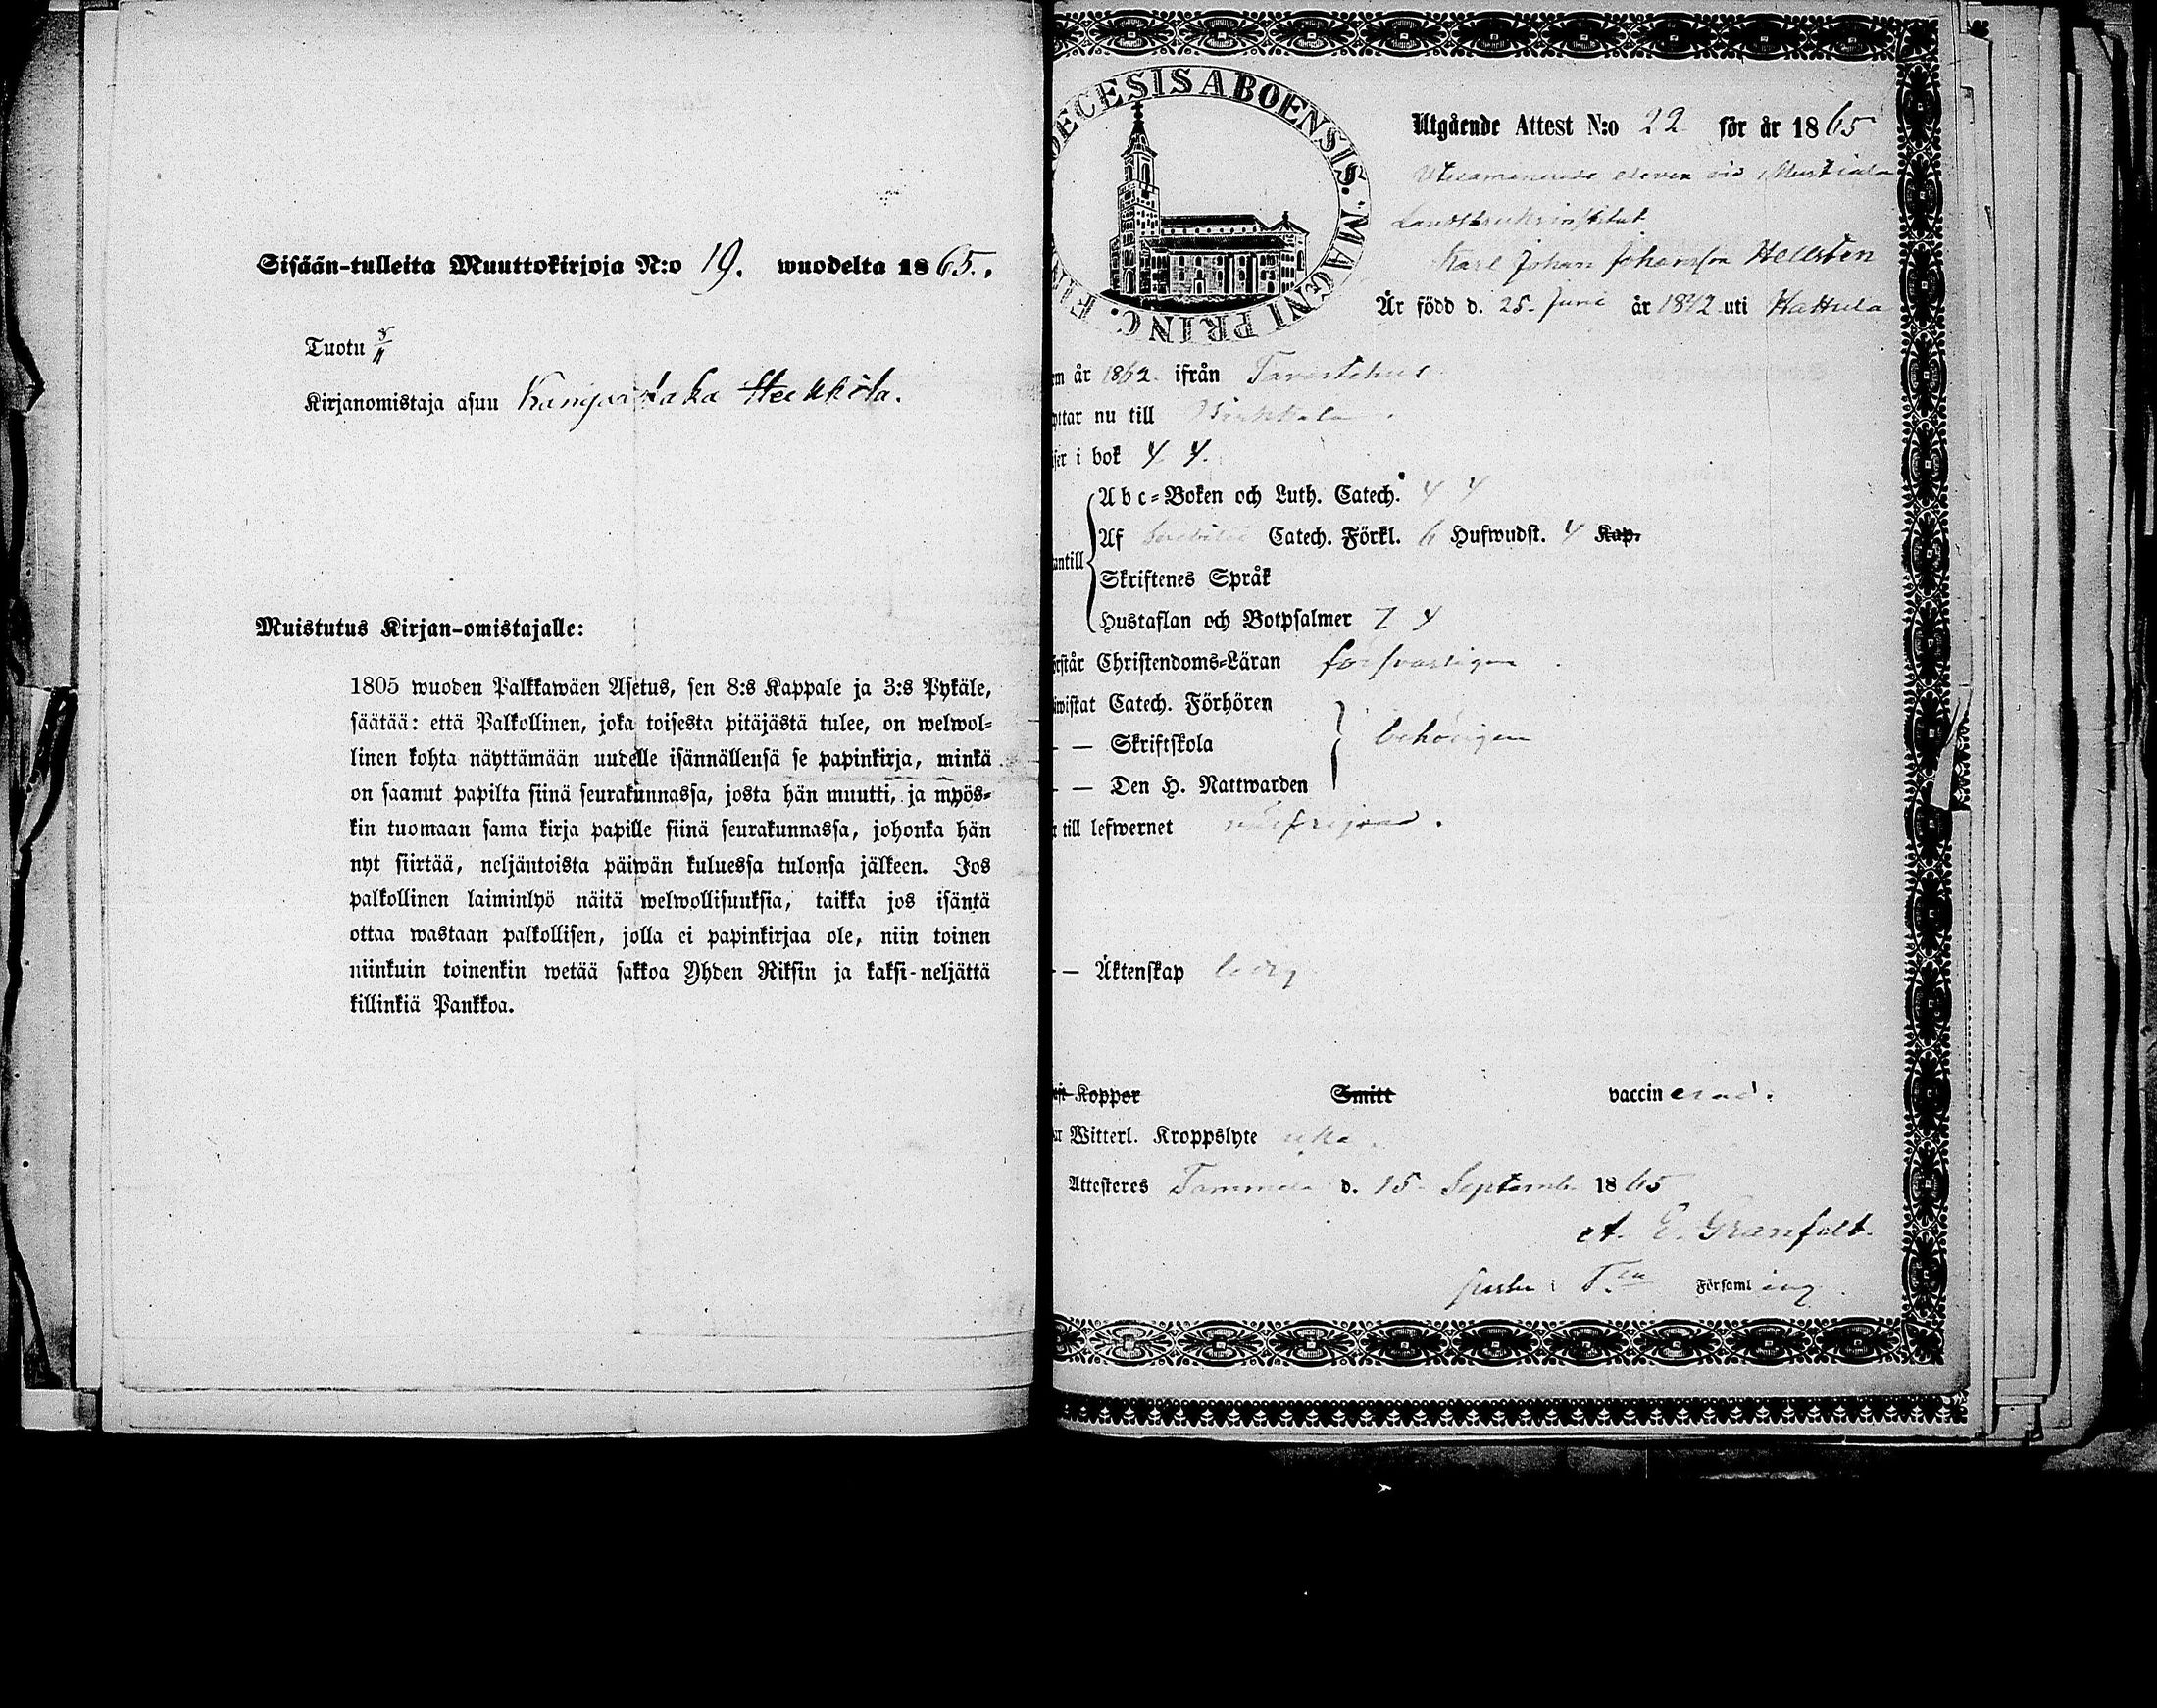 Sisään-tulleita Muuttokirjoja N:o 19. wuodelta 1865.
Tuotu 5/11
Kirjanomistaja asuu Heikkilä.
Muistutus Kirjan-omistajalle:
1805 wuoden Palkkawäen Asetus, sen 8:s Kappale ja 3:s Pykäle,
säätää: että Palkollinen, joka toisesta pitäjästä tulee, on welwol-
linen kohta näyttämään uudelle isännällensä se papinkirja, minkä
on saanut papilta siinä seurakunnassa, josta hän muutti, ja myös-
kin tuomaan sama kirja papille siinä seurakunnassa, johonka hän
nyt siirtää, neljäntoista päiwän kuluessa tulonsa jälkeen. Jos
palkollinen laiminlyö näitä welwollisuuksia, taikka jos isäntä
ottaa wastaan palkollisen, jolla ei papinkirjaa ole, niin toinen
niinkuin toinenkin wetää sakkoa Yhden Riksin ja kaksi-neljättä
killinkiä Pankkoa.
ECESIS ABOENSIS. MAGNI PRINC. FIN
Utgående Attest N:o 22 för år 1865
Utexaminerade eleven vid Mustiala
Landtbruksinstitut
Karl Johan Johansson Hellsten
Är född d. 25. Juni år 1842 uti Hattula
m år 1862 ifrån Tavastehus
ttar nu till
ser i bok 4 4.
antill
Abc-Boken och Luth. Catech. 4 4
Af Svebilii Catech. Förkl. 6 Hufwudst. 4 Kap.
Skriftenes Språk
Hustaflan och Botpsalmer 7 4
rstår Christendoms-Läran försvarligen
wistat Catech. Förhören
— — Skriftskola behörigen
— — Den H. Nattwarden
till lefwernet oväfrejdad.
— — Äktenskap ledig
Koppor Smitt vaccinerad.
ar Witterl. Kroppslyte icke.
Attesteres Tammela d. 15 Septemb. 1865
A. E. Granfelt.
i T.la Församling.